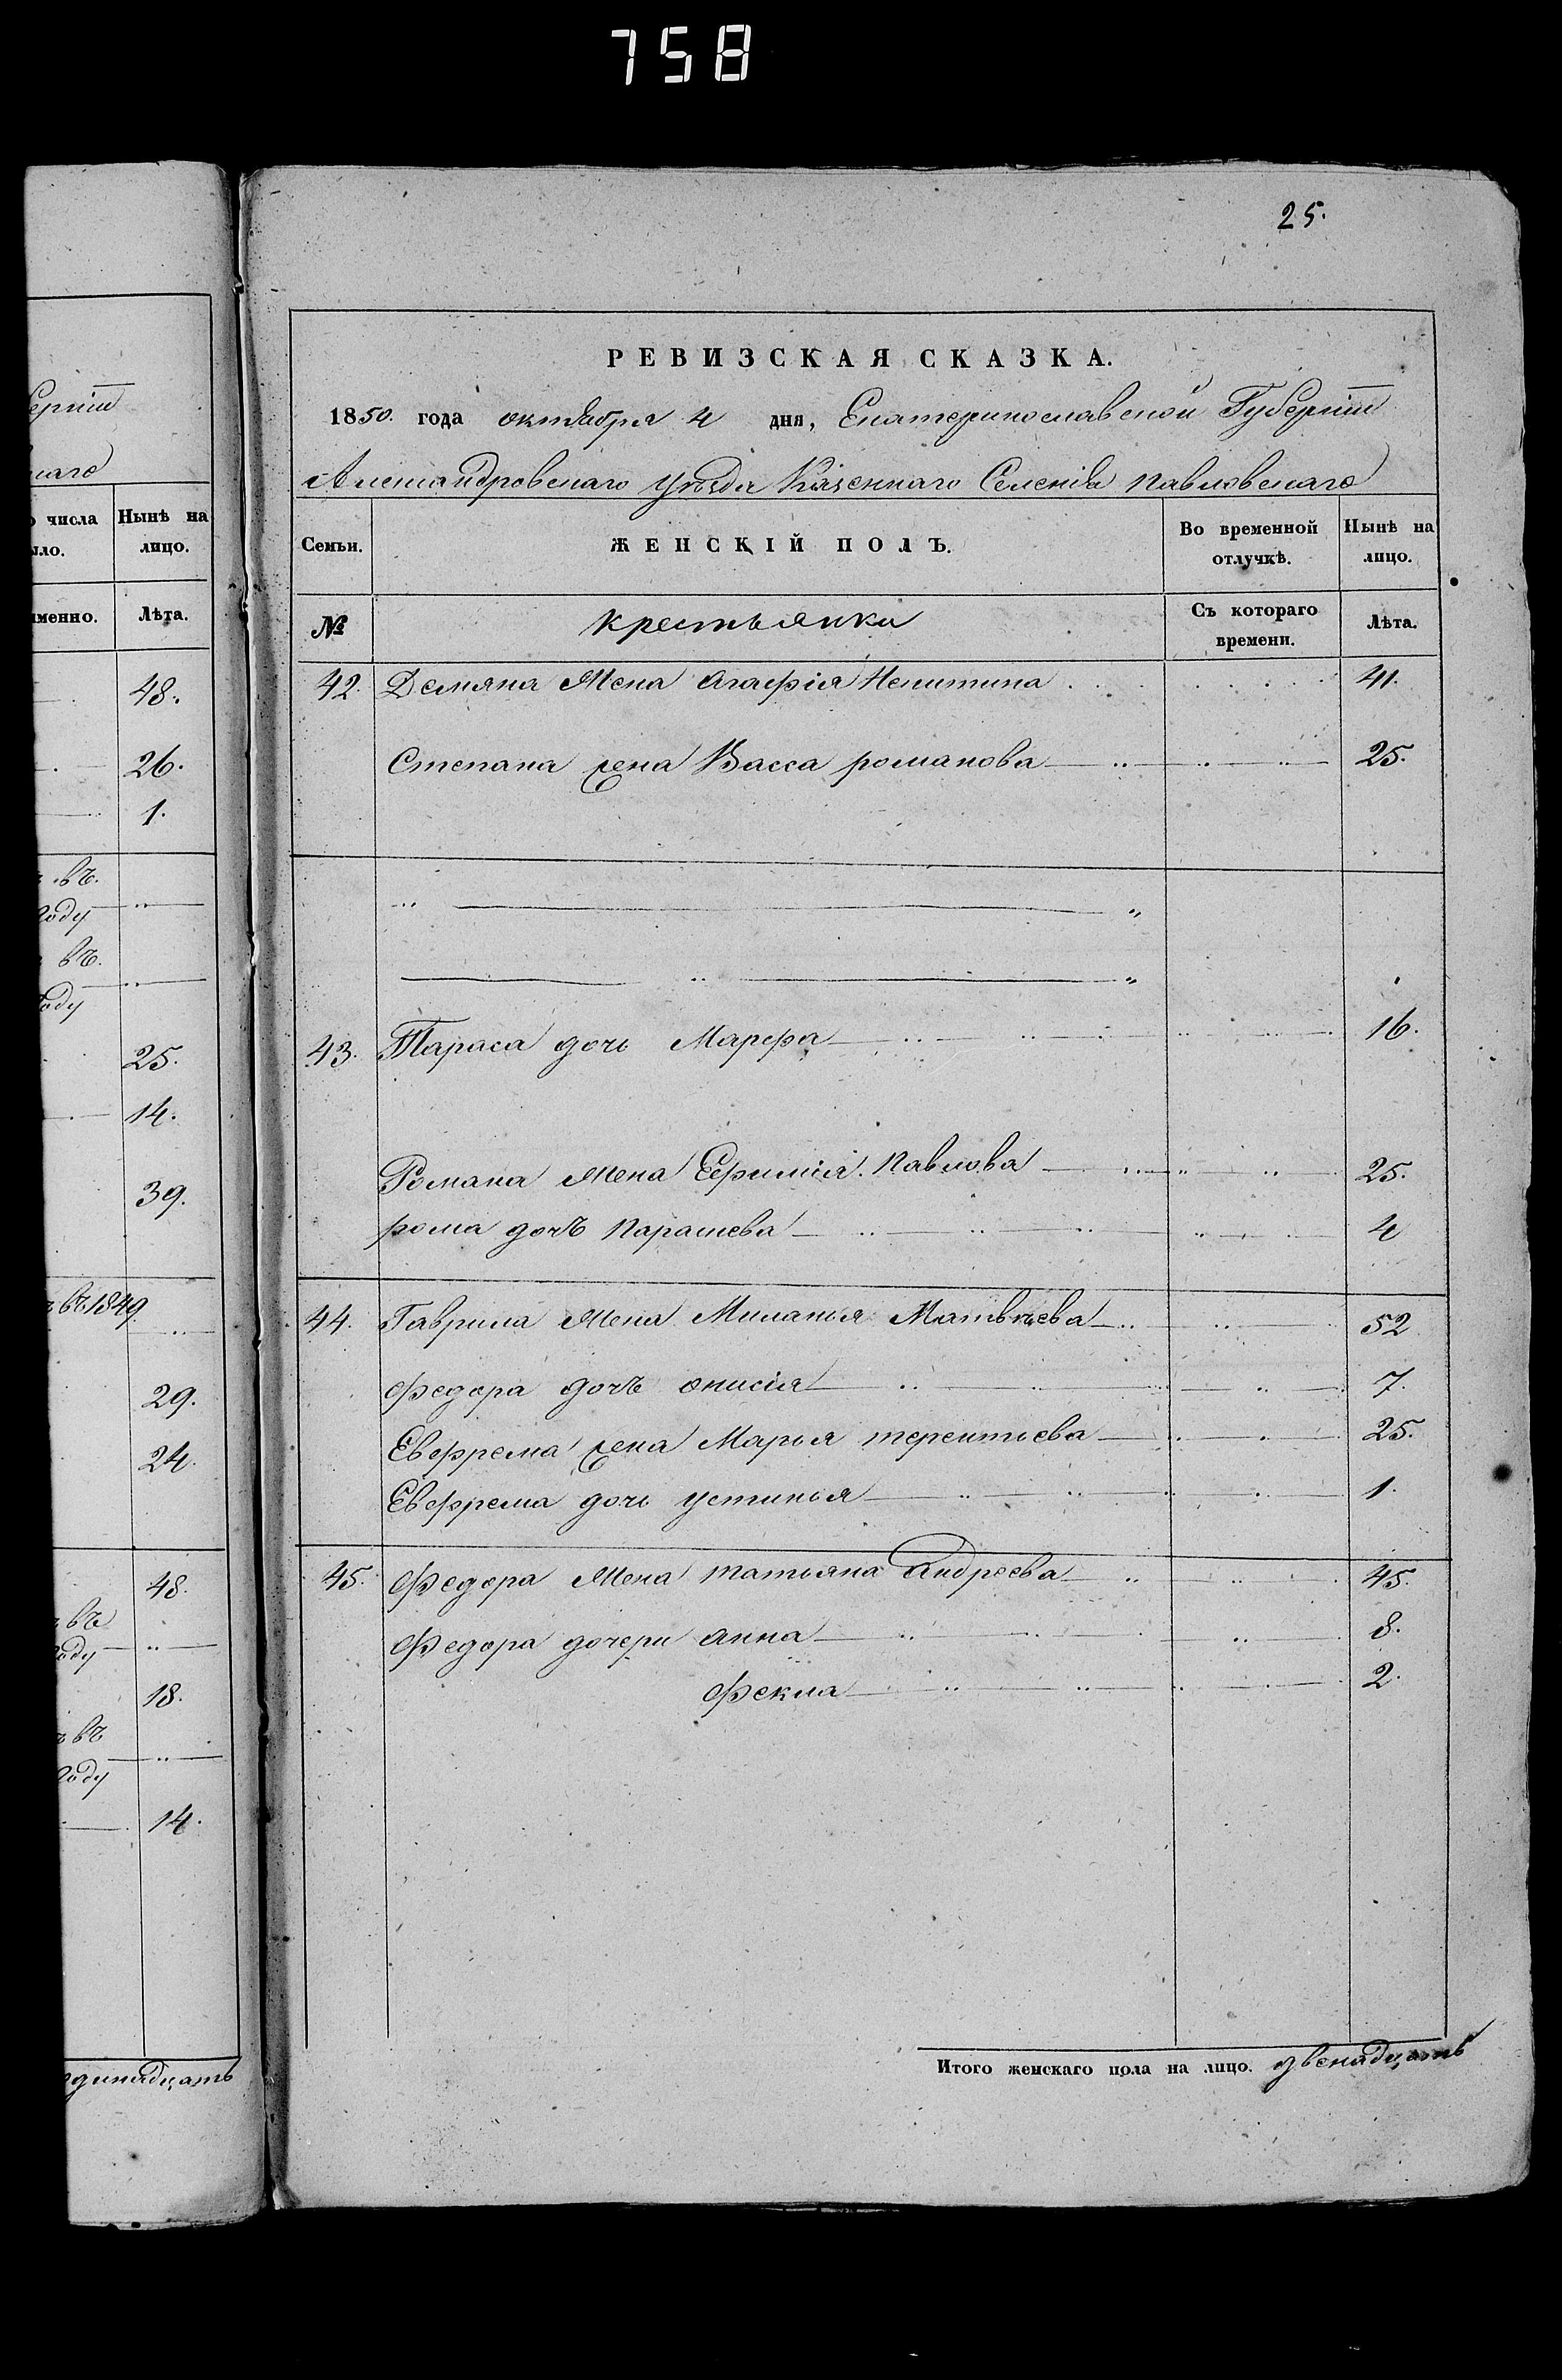 758
25.
РЕВИЗСКАЯ СКАЗКА.
1850. года октября 4 дня, Екатеринославской Губерніи
Александровскаго уѣзда Казеннаго Селенія Павловскаго
Семьи. ЖЕНСКІЙ ПОЛЪ. Во временной отлучкѣ. Нынѣ на лицо.
№ крестьянки Съ котораго времени. Лѣта.
42. Демяна жена агафія Никитина 41.
Степана жена Васса романова 25.
43. Тараса дочь Марфа 16.
Романа жена Ефимія Павлова 25.
рома дочъ Параскева 4
44. Гаврила жена Миланья Матвѣева 52
Федора дочъ онисія 7.
Евфрема жена Марья терентьева 25.
Евфрема дочь устинья 1.
45. Федора жена татьяна Андреева 45.
Федора дочери анна 8.
Фекла 2.
Итого женскаго пола на лицо. двенадцать
числа Нынѣ на
лицо.
Лѣта.
48.
26.
1.
въ.
году
въ.
году
25.
14.
39.
въ 1849
29.
24.
48.
въ
году
18.
въ
году
14.